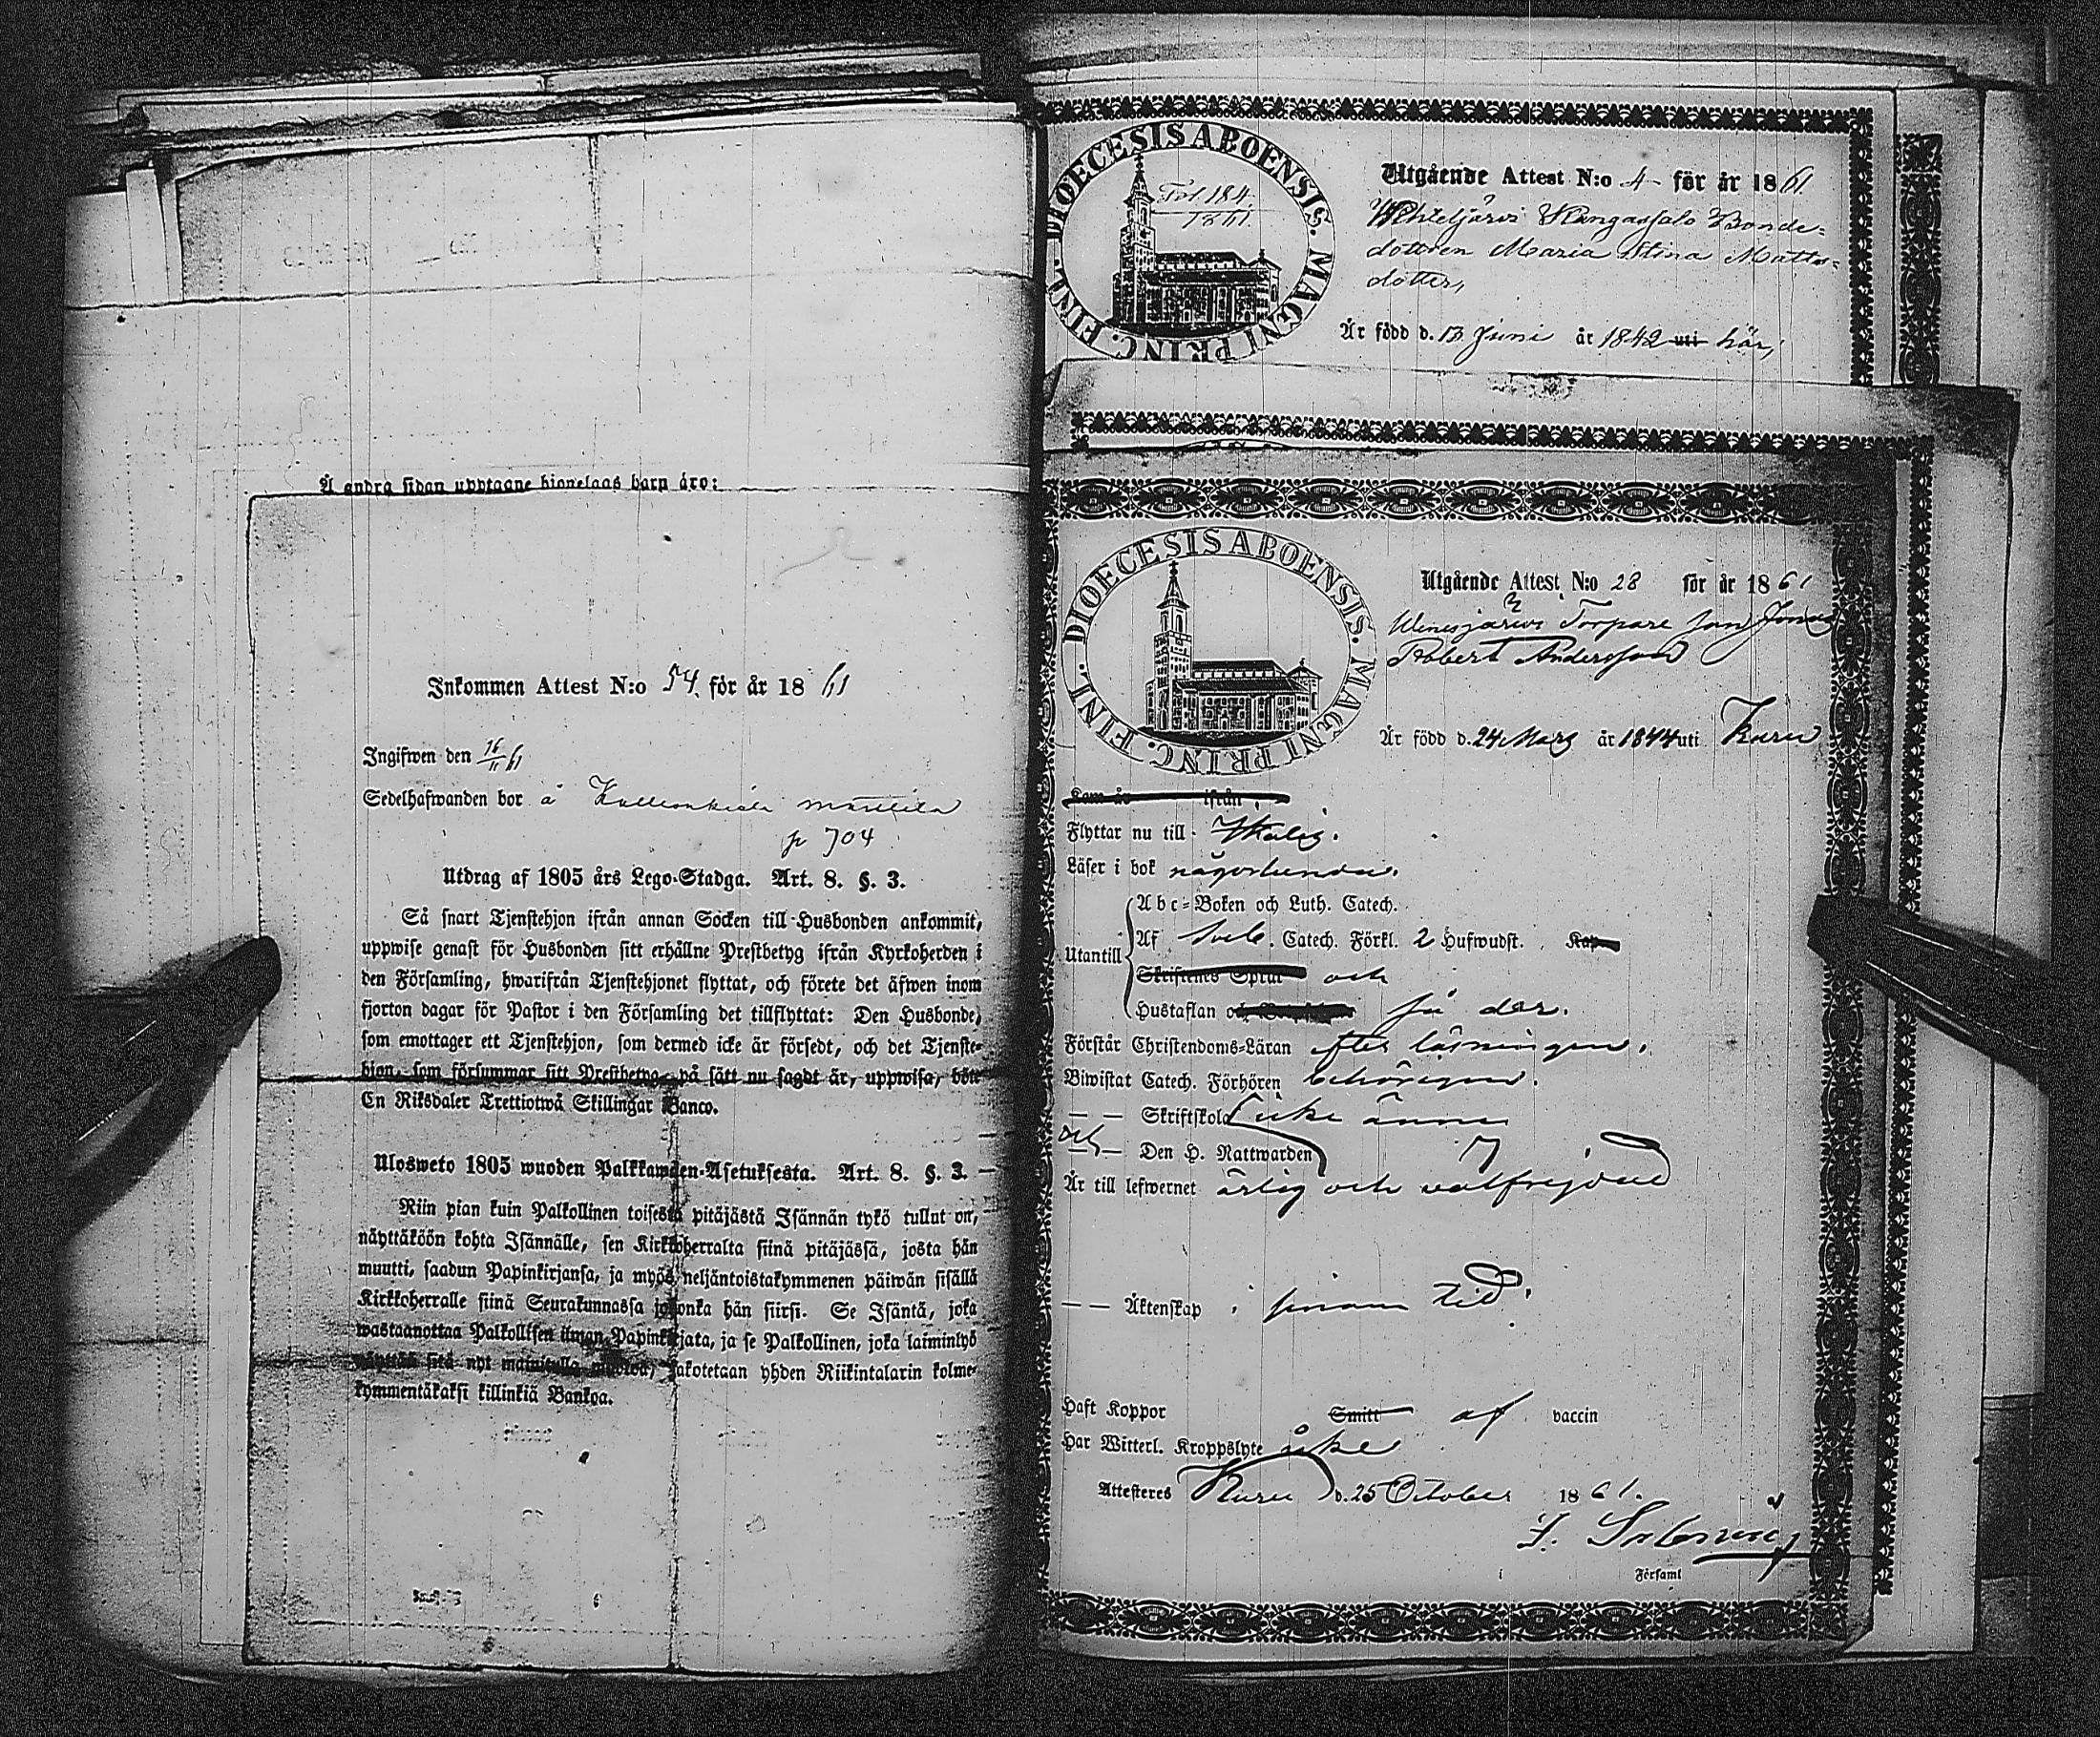 Å andra sidan upptagne hjonelags barn äro:
Inkommen Attest N:o 54. för år 1861
Ingifwen den 16/11 61
Sedelhafwanden bor å
p 704
Utdrag af 1805 års Lego-Stadga. Art. 8. §. 3.
Så snart Tjenstehjon ifrån annan Socken till Husbonden ankommit,
uppwise genast för Husbonden sitt erhållne Prestbetyg ifrån Kyrkoherden i
den Församling, hwarifrån Tjenstehjonet flyttat, och förete det äfwen inom
fjorton dagar för Pastor i den Församling det tillflyttat: Den Husbonde,
som emottager ett Tjenstehjon, som dermed icke är försedt, och det Tjenste-
hjon, som försummar sitt Prestbetyg på sätt nu sagdt är, uppwisa, böte
En Riksdaler Trettiotwå Skillingar Banco.
Ulosweto 1805 wuoden Palkkawäen-Asetuksesta. Art. 8. §. 3.
Niin pian kuin Palkollinen toisesta pitäjästä Isännän tykö tullut on,
näyttäköön kohta Isännälle, sen Kirkkoherralta siinä pitäjässä, josta hän
muutti, saadun Papinkirjansa, ja myös neljäntoistakymmenen päiwän sisällä
Kirkkoherralle siinä Seurakunnassa johonka hän siirsi. Se Isäntä, joka
wastaanottaa Palkollisen ilman Papinkirjata, ja se Palkollinen, joka laiminlyö
näyttää sitä nyt mainitulla muotoa, sakotetaan yhden Riikintalarin kolme-
kymmentäkaksi killinkiä Bankoa.
DIOECESIS ABOENSIS. MAGNI PRINC. FINL.
Fol. 184.
1861.
Utgående Attest N:o 4 för år 1861
Kangassalo Bonde-
dottren Maria Stina Matts-
dotter,
Är född d. 13 Juni år 1842 uti här,
DIOECESIS ABOENSIS. MAGNI PRINC. FINL.
Utgående Attest N:o 28 för år 1861
Torpare son Jonas
Robert Andersson
Är född d. 24 Mars år 1844 uti Kuru
Kom år ifrån
Flyttar nu till Ikalis.
Läser i bok någorlunda.
Abc-Boken och Luth. Catech.
Utantill Af Sveb. Catech. Förkl. 2 Hufwudst.
Skriftenes Språk och
Hustaflan och
Förstår Christendoms-Läran efter läsningen.
Biwistat Catech. Förhören behörigen.
— — Skriftskola icke ännu
— — Den H. Nattwarden
Är till lefwernet ärlig och välfrejdad
— — Äktenskap i sinom tid.
Haft Koppor Smitt af vaccin
Har Witterl. Kroppslyte icke
Attesteras Kuru d. 25 October 1861.
i Församl